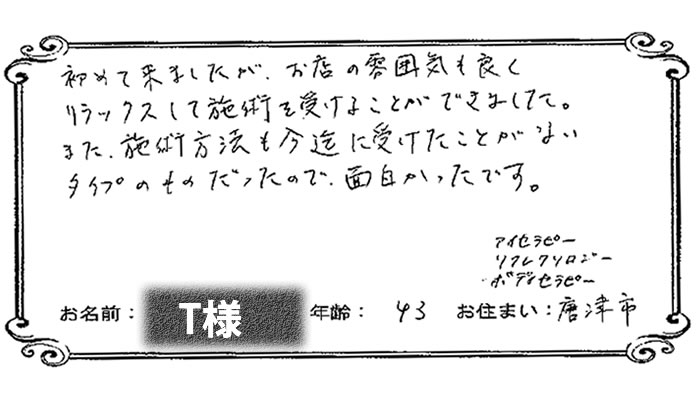 初めて来ましたが、お店の雰囲気も良く
リラックスして施術を受けることができました。
また、施術方法も今迄に受けたことがない
タイプのものだったので、面白かったです。
アイセラピー
リフレクソロジー
ボディセラピー
お名前： T様 年齢： 43 お住まい：唐津市